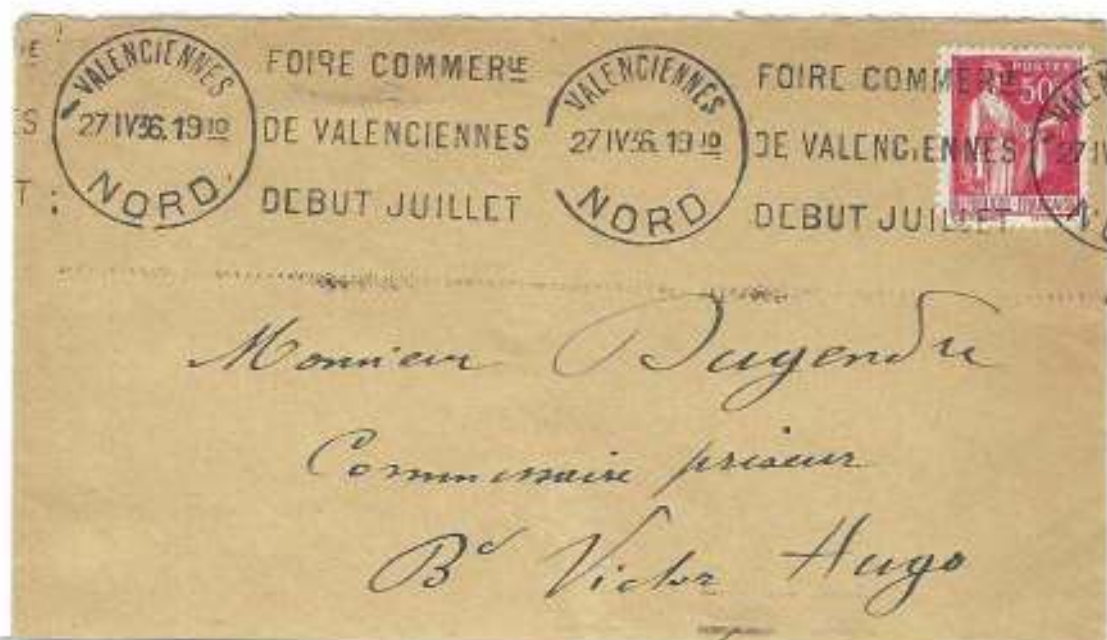 VALENCIENNES
27 IV 36. 19 10
NORD
FOIRE COMMERLE
DE VALENCIENNES
DEBUT JUILLET
VALENCIENNES
27 IV 36. 19 10
NORD
FOIRE COMMERLE
DE VALENCIENNES
DEBUT JUILLET
POSTES
50
Monsieur Dugendre
Commissaire priseur
Bd Victor Hugo